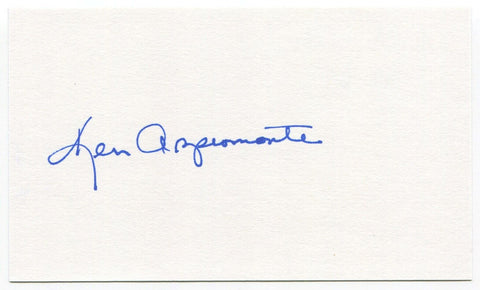 Ken Aspromonte